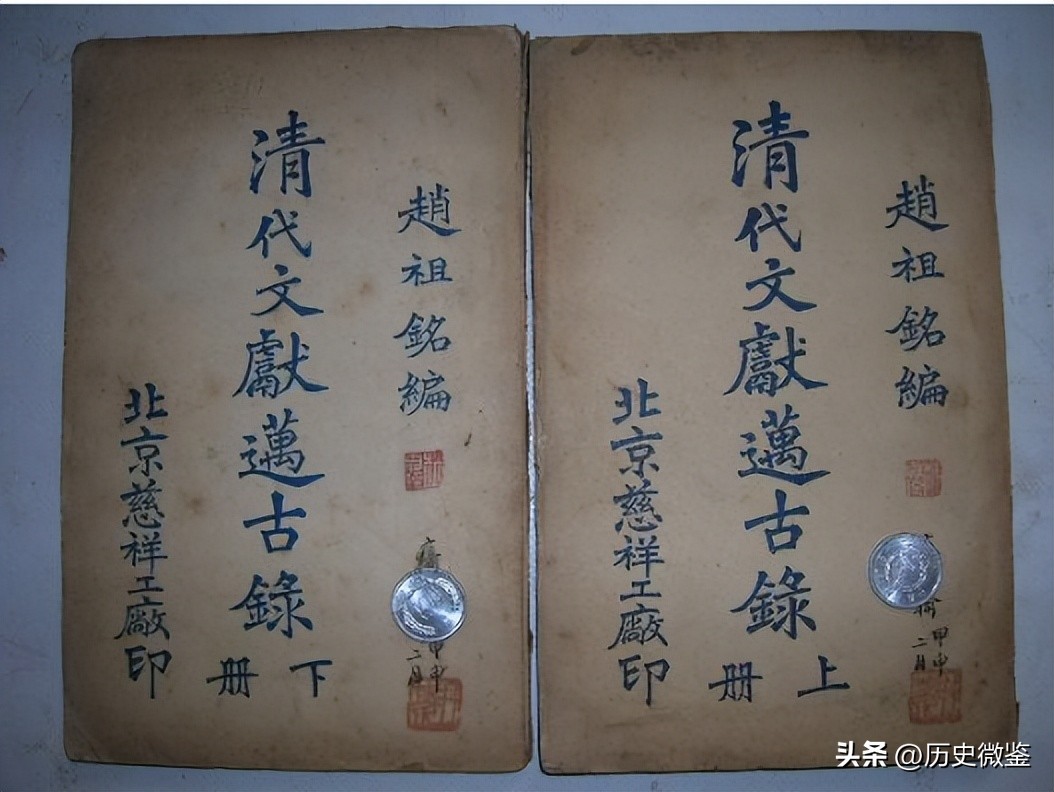 趙祖銘編
清代文獻邁古錄
上册
北京慈祥工廠印
甲申
二月
趙祖銘編
清代文獻邁古錄
下册
北京慈祥工廠印
甲申
二月
头条 @历史微鉴